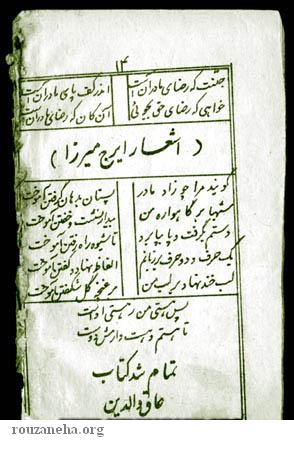 ۱۴
جنت که رضای مادرانست اندر کف پای مادرانست
خواهی که رضای حق بجوئی آن کان که رضای مادرانست
( اشعار ایرج میرزا )
گویند مرا چو زاد مادر پستان بدهان گرفتن آموخت
شبها بر گاهواره من بیدار نشست و خفتن آموخت
دستم بگرفت و پا بپا برد تا شیوه راه رفتن آموخت
یک حرف و دو حرف بر زبانم الفاظ نهاد و گفتن آموخت
لب خند نهاد بر لب من بر غنچه گل شکفتن آموخت
پس هستی من ز هستی اوست
تا هستم و هست دارمش دوست
تمام شد کتاب
عاق والدین
rouzaneha.org